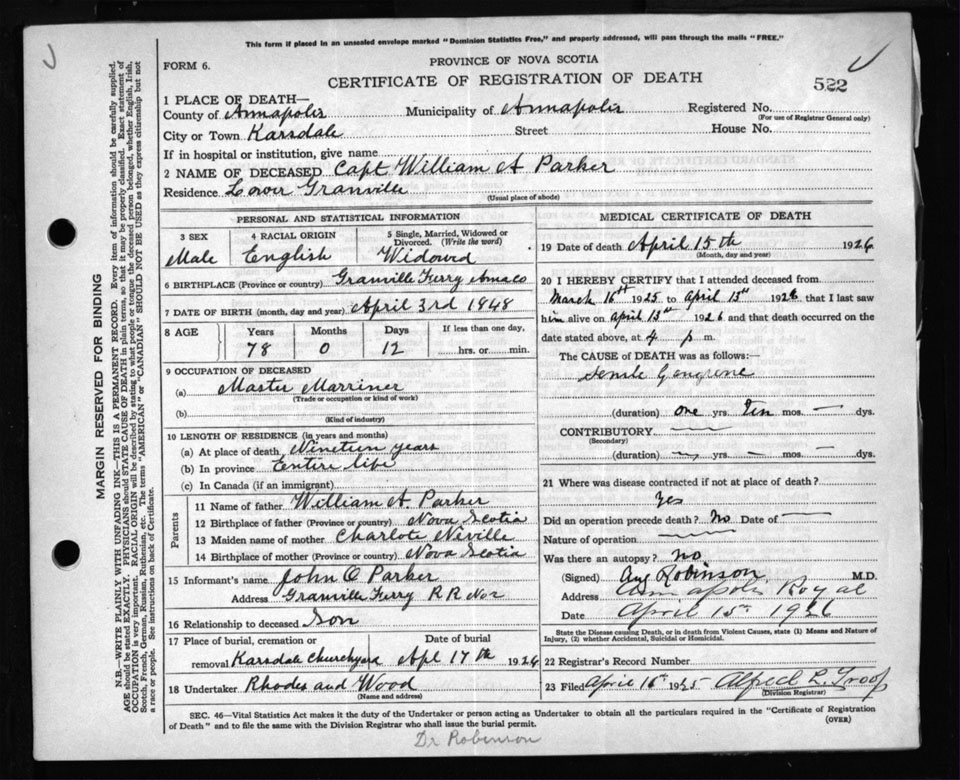 This form if placed in an unsealed envelope marked "Dominion Statistics Free," and properly addressed, will pass through the mails "FREE."
FORM 6.
PROVINCE OF NOVA SCOTIA
CERTIFICATE OF REGISTRATION OF DEATH
522
1 PLACE OF DEATH—
County of Annapolis Municipality of Annapolis Registered No.
(For use of Registrar General only)
City or Town Karsdale Street House No.
If in hospital or institution, give name
2 NAME OF DECEASED Capt William A Parker
Residence Lower Granville
(Usual place of abode)
PERSONAL AND STATISTICAL INFORMATION
3 SEX 4 RACIAL ORIGIN 5 Single, Married, Widowed or Divorced. (Write the word)
Male English Widowd
6 BIRTHPLACE (Province or country) Granville Ferry Annaco
7 DATE OF BIRTH (month, day and year) April 3rd 1848
8 AGE Years Months Days If less than one day,
78 0 12 hrs. or min.
9 OCCUPATION OF DECEASED
(a) Master Marriner
(Trade or occupation or kind of work)
(b)
(Kind of industry)
10 LENGTH OF RESIDENCE (in years and months)
(a) At place of death Nineteen years
(b) In province Entire life
(c) In Canada (if an immigrant)
Parents
11 Name of father William A. Parker
12 Birthplace of father (Province or country) Nova Scotia
13 Maiden name of mother Charlote Neville
14 Birthplace of mother (Province or country) Nova Scotia
15 Informant's name John O Parker
Address Granville Ferry R R No 2
16 Relationship to deceased Son
17 Place of burial, cremation or removal Date of burial
Karsdale Churchyard Apl 17th 1926
18 Undertaker Rhodes and Wood
(Name and address)
MEDICAL CERTIFICATE OF DEATH
19 Date of death April 15th 1926
(Month, day and year)
20 I HEREBY CERTIFY that I attended deceased from
March 16th 1925 to April 13th 1926 that I last saw
him alive on April 13th 1926 and that death occurred on the
date stated above, at 4 p m.
The CAUSE of DEATH was as follows:—
Senile Gangrene
(duration) one yrs. Ten mos. — dys.
CONTRIBUTORY
(Secondary)
(duration) yrs. — mos. — dys.
21 Where was disease contracted if not at place of death?
Yes
Did an operation precede death? No Date of
Nature of operation
Was there an autopsy? No
(Signed) Robinson M.D.
Address Annapolis Royal
Date April 15th 1926
State the Disease causing Death, or in death from Violent Causes, state (1) Means and Nature of
Injury, (2) whether Accidental, Suicidal or Homicidal.
22 Registrar's Record Number
23 Filed April 16th 1925 Alfred L. Troop
(Division Registrar)
SEC. 46—Vital Statistics Act makes it the duty of the Undertaker or person acting as Undertaker to obtain all the particulars required in the "Certificate of Registration
of Death" and to file the same with the Division Registrar who shall issue the burial permit. (OVER)
Dr Robinson
MARGIN RESERVED FOR BINDING
N.B.—WRITE PLAINLY WITH UNFADING INK—THIS IS A PERMANENT RECORD. Every item of information should be carefully supplied.
AGE should be stated EXACTLY. PHYSICIANS should STATE CAUSE OF DEATH in plain terms, so that it may be properly classified. Exact statement of
OCCUPATION is very important. RACIAL ORIGIN will be described by stating to what people or tongue the deceased person belonged, whether English, Irish,
Scotch, French, German, Russian, Ruthenian, etc. The terms "AMERICAN" or "CANADIAN" SHOULD NOT BE USED as they express citizenship but not
a race or people. See instructions on back of Certificate.